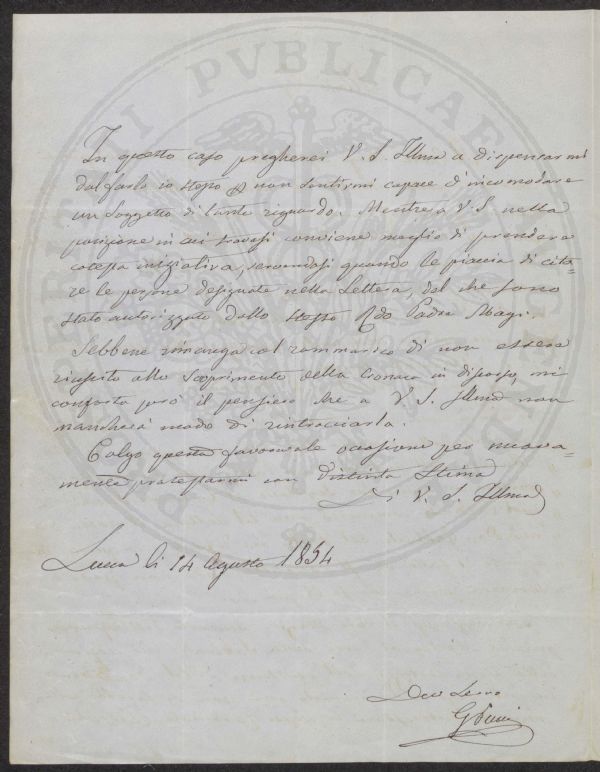 In questo caso pregherei V. S. Illma a dispensarmi
dal farlo io stesso non sentirmi capace d'incomodare
un Soggetto di tanto riguardo. Mentre a V. S. nella
posizione in cui trovasi conviene meglio di prendere
cotesta iniziativa, servendosi quando le piaccia di cita=
re le persone designate nella Lettera, dal che sono
stato autorizzato dallo stesso Rdo Padre Magi.
Sebbene rimanga col rammarico di non essere
riuscito allo scoprimento della Cronaca in discorso, mi
conforta però il pensiero che a V. S. Illma non
mancherà modo di rintracciarla.
Colgo questa favorevole ocasione per nuova=
mente protestarmi con distinta Stima
Di V. S. Illma
Lucca li 14 Agosto 1854
Devo Servo
PVBLICAE